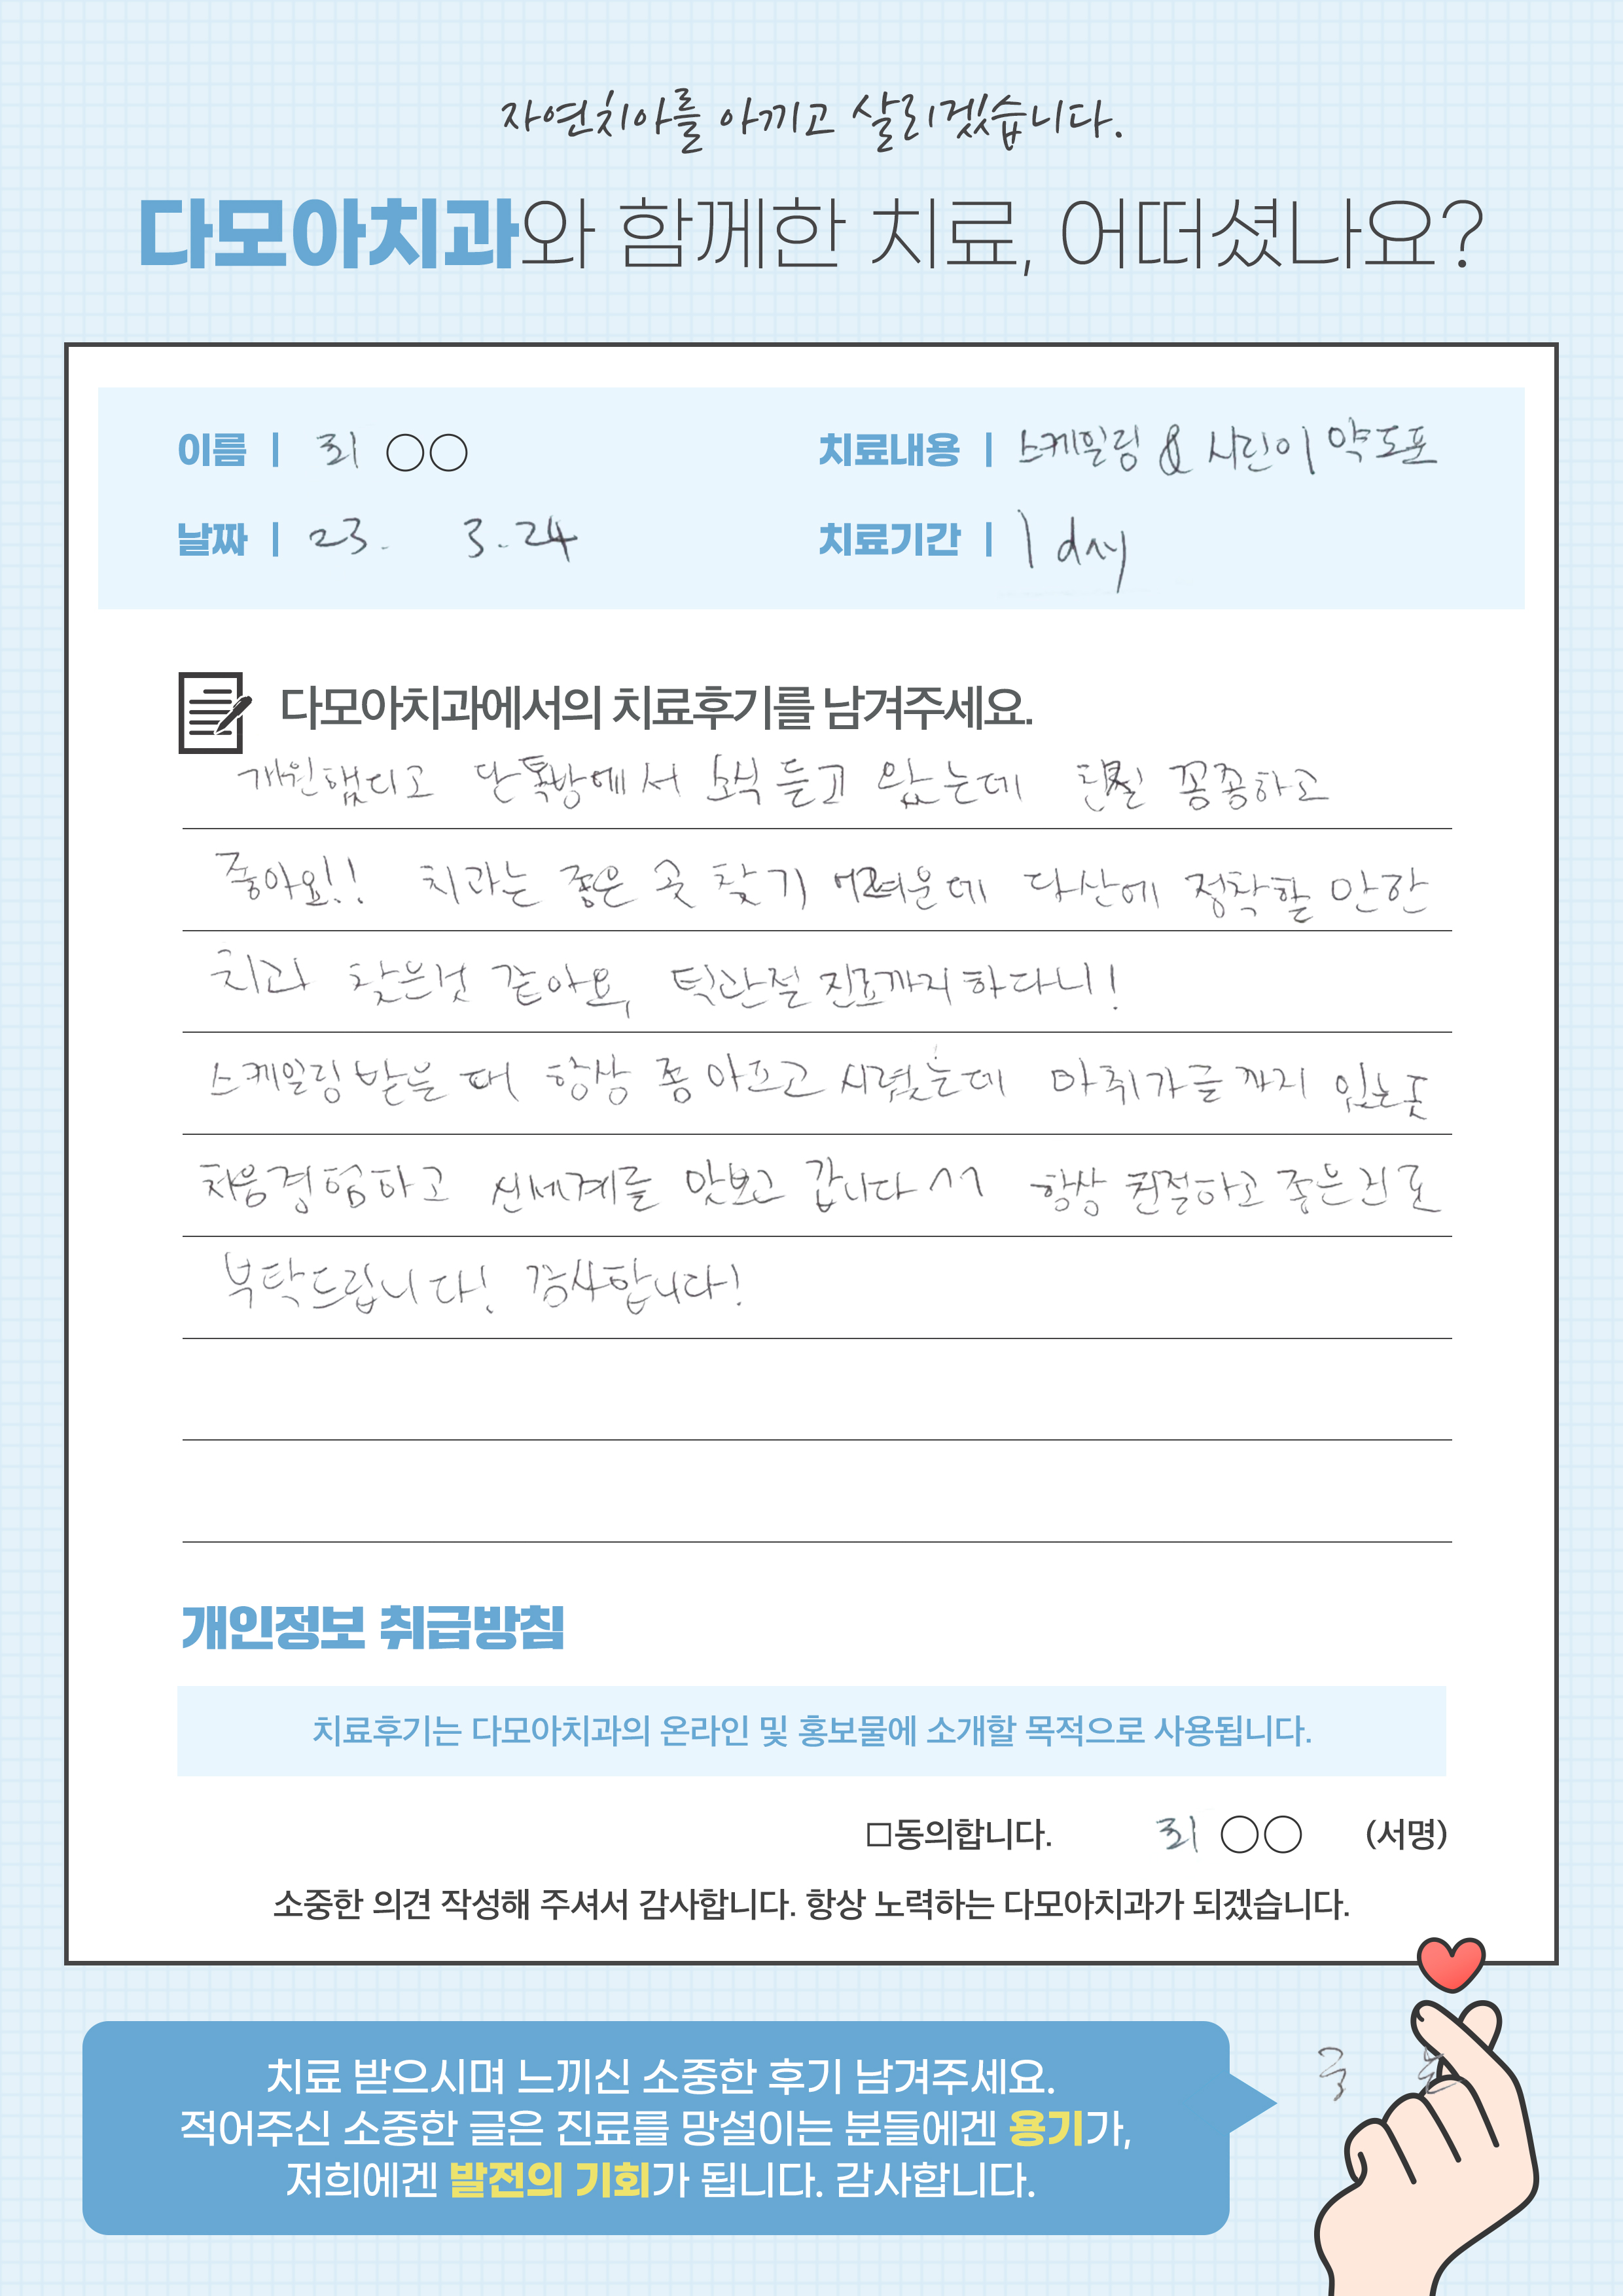 자연치아를 아끼고 살리겠습니다.
다모아치과와 함께한 치료, 어떠셨나요?
이름 | 최 ○○
치료내용 | 스케일링 & 시린이 약도포
날짜 | 23. 3.24
치료기간 | 1 day
다모아치과에서의 치료후기를 남겨주세요.
개원했다고 단톡방에서 소식 듣고 왔는데 꼼꼼하고
좋아요!! 치과는 좋은 곳 찾기 어려운데 다산에 정착할 만한
치과 찾은것 같아요, 턱관절 진료까지 하다니!
스케일링 받을 때 항상 좀 아프고 시렸는데 마취가글까지 있는곳
처음경험하고 신세계를 맛보고 갑니다 ^^ 항상 친절하고 좋은진료
부탁드립니다! 감사합니다!
개인정보 취급방침
치료후기는 다모아치과의 온라인 및 홍보물에 소개할 목적으로 사용됩니다.
□동의합니다. 최 ○○ (서명)
소중한 의견 작성해 주셔서 감사합니다. 항상 노력하는 다모아치과가 되겠습니다.
치료 받으시며 느끼신 소중한 후기 남겨주세요.
적어주신 소중한 글은 진료를 망설이는 분들에겐 용기가,
저희에겐 발전의 기회가 됩니다. 감사합니다.